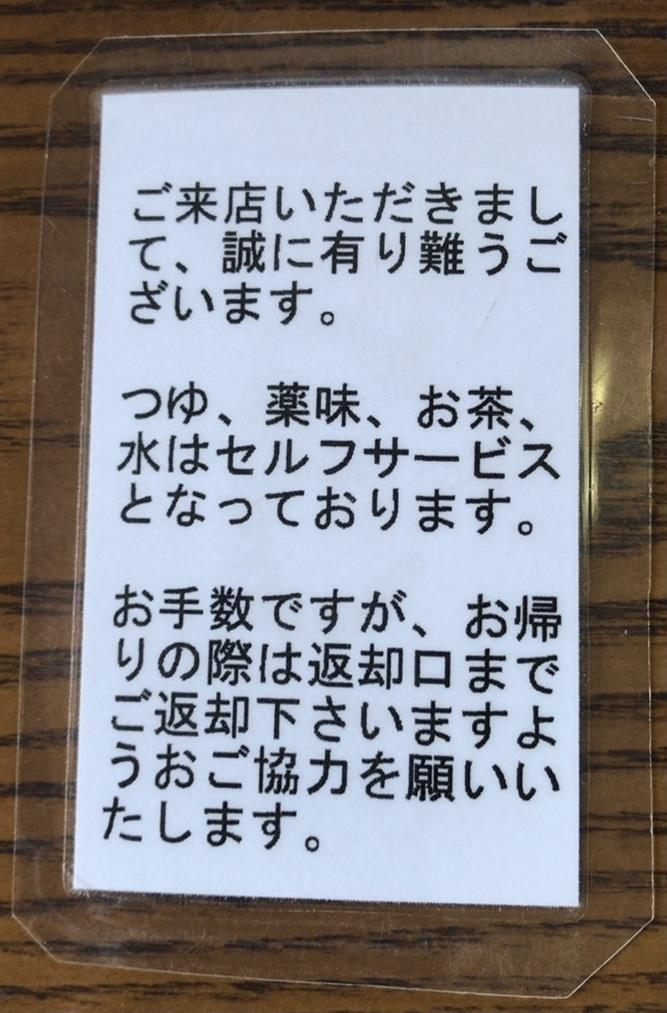 ご来店いただきまし
て、誠に有り難うご
ざいます。
つゆ、薬味、お茶、
水はセルフサービス
となっております。
お手数ですが、お帰
りの際は返却口まで
ご返却下さいますよ
うおご協力を願いい
たします。